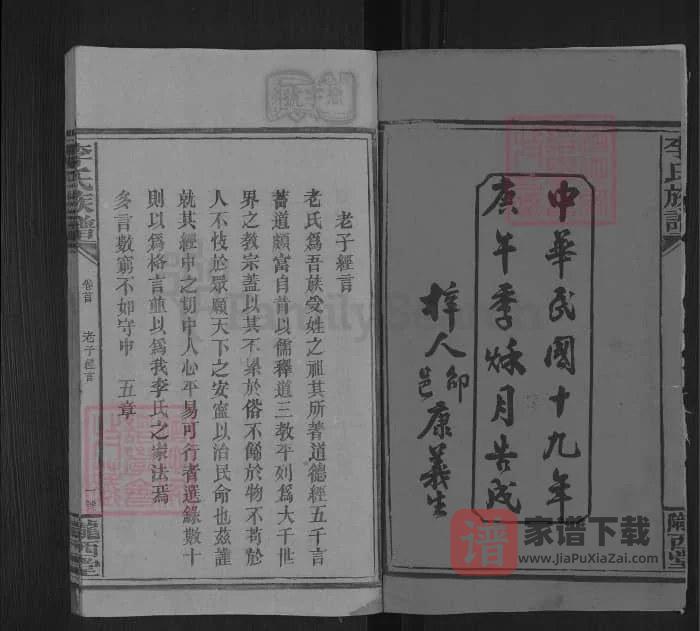 李氏族譜
中華民國十九年
庚午季秌月告成
梓人邵邑康義生
隴西堂
老子經言
老氏爲吾族受姓之祖其所著道德經五千言
蓄道頗富自昔以儒釋道三教平列爲大千世
界之教宗蓋以其不累於俗不餙於物不苟於
人不忮於眾願天下之安寧以治民命也茲謹
就其經中之切中人心平易可行者選錄數十
則以爲格言並以爲我李氏之家法焉
多言數窮不如守中 五章
李氏族譜
卷首
老子經言
一
隴西堂
譜
家谱下载
www.JiaPuXiaZai.com
FamilySearch